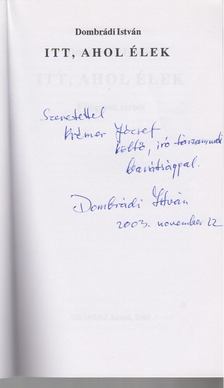 Dombrádi István
ITT, AHOL ÉLEK
Szeretettel
Krémer József
költő, író
barátsággal.
Dombrádi István
2003. november 22